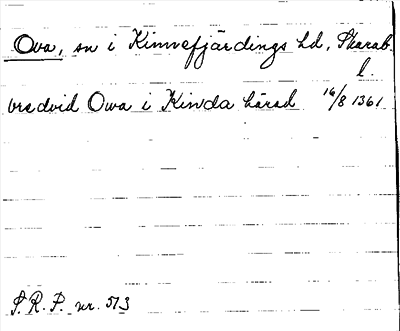 Ova, sn i Kinnefjärdings hd, Skarab.
l.
vredvid Owa i Kinda härad 16/8 1361
S.R.P. nr. 513